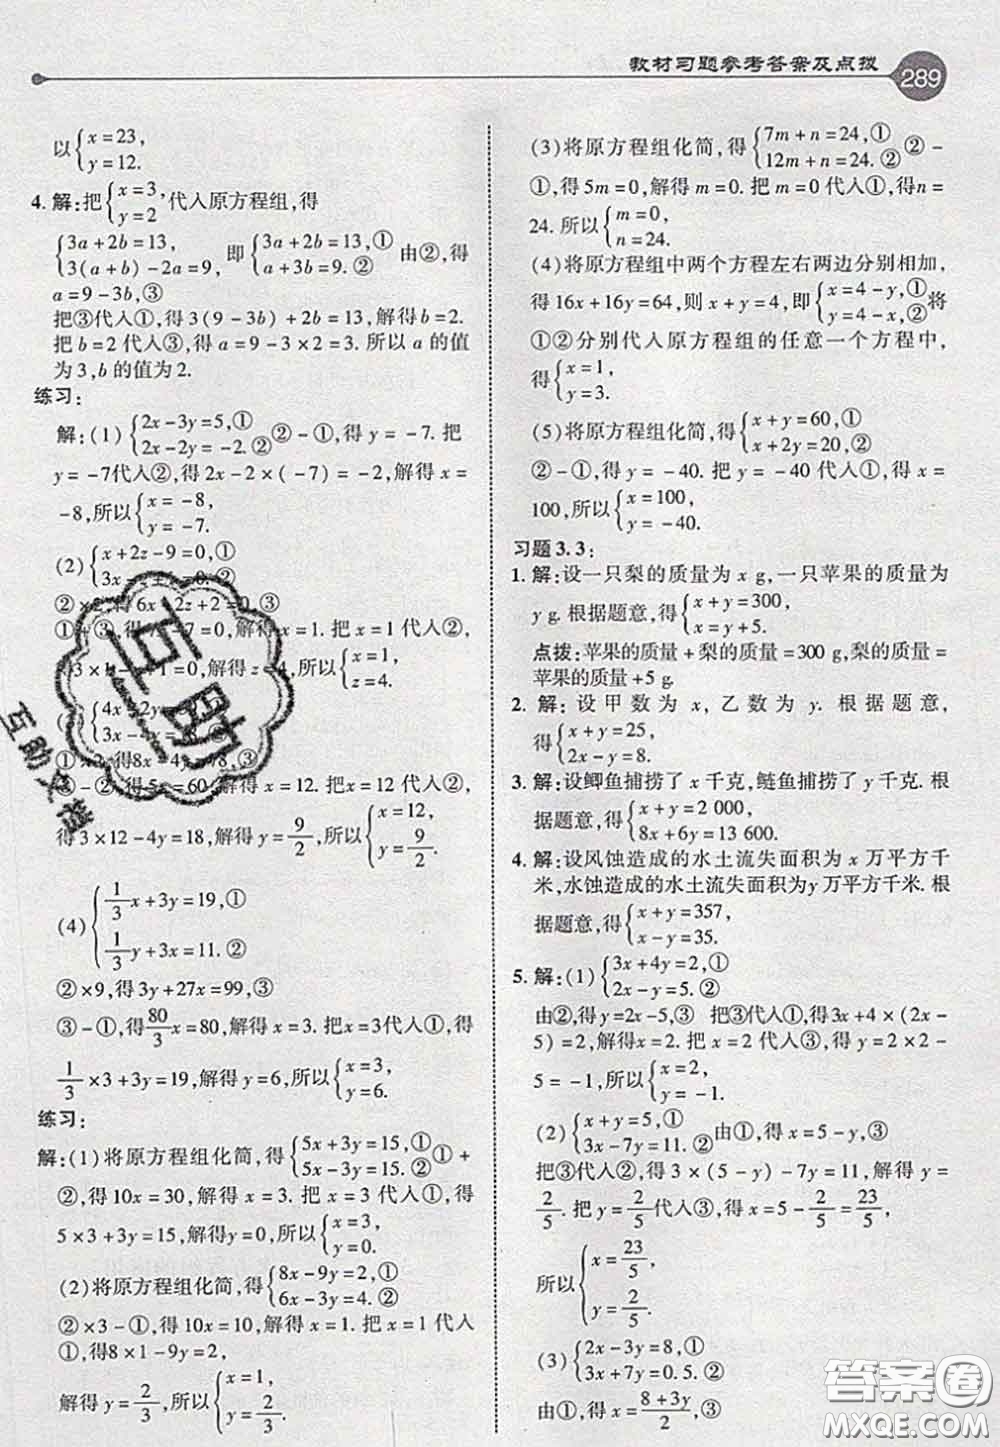 教材习题参考答案及点拨
289
以{x=23,
y=12.
4. 解:把{x=3,
y=2,代入原方程组,得
{3a+2b=13,
3(a+b)-2a=9, 即{3a+2b=13,①
a+3b=9.② 由②,得
a=9-3b,③
把③代入①,得3(9-3b)+2b=13,解得b=2.
把b=2代入③,得a=9-3×2=3.所以a的值
为3,b的值为2.
练习:
解:(1){2x-3y=5,①
2x-2y=-2.② ②-①,得y=-7.把
y=-7代入②,得2x-2×(-7)=-2,解得x=
-8,所以{x=-8,
y=-7.
(2){x+2z-9=0,①
②×2,得6x-2z+2=0,③
①+③,得7x-7=0,解得x=1.把x=1代入②,
得z=4,所以{x=1,
z=4.
①×2,得8x-4y=78,③
③-②,得5x=60,解得x=12.把x=12代入②,
得3×12-4y=18,解得y=9/2,所以{x=12,
y=9/2.
(4){1/3x+3y=19,①
1/3y+3x=11.②
②×9,得3y+27x=99,③
③-①,得80/3x=80,解得x=3.把x=3代入①,得
1/3×3+3y=19,解得y=6,所以{x=3,
y=6.
练习:
解:(1)将原方程组化简,得{5x+3y=15,①
5x-3y=15.② ①+
②,得10x=30,解得x=3.把x=3代入①,得
5×3+3y=15,解得y=0,所以{x=3,
y=0.
(2)将原方程组化简,得{8x-9y=2,①
6x-3y=4.②
②×3-①,得10x=10,解得x=1.把x=1代入
①,得8×1-9y=2,
解得y=2/3,所以{x=1,
y=2/3.
(3)将原方程组化简,得{7m+n=24,①
12m+n=24.② ②-
①,得5m=0,解得m=0.把m=0代入①,得n=
24.所以{m=0,
n=24.
(4)将原方程组中两个方程左右两边分别相加,
得16x+16y=64,则x+y=4,即{x=4-y,①
y=4-x,② 将
①②分别代入原方程组的任意一个方程中,
得{x=1,
y=3.
(5)将原方程组化简,得{x+y=60,①
x+2y=20,②
②-①,得y=-40.把y=-40代入①,得x=
100,所以{x=100,
y=-40.
习题3.3:
1. 解:设一只梨的质量为x g,一只苹果的质量为
y g.根据题意,得{x+y=300,
x=y+5.
点拨:苹果的质量+梨的质量=300 g,梨的质量=
苹果的质量+5 g.
2. 解:设甲数为x,乙数为y.根据题意,
得{x+y=25,
2x-y=8.
3. 解:设鲫鱼捕捞了x千克,鲢鱼捕捞了y千克.根
据题意,得{x+y=2 000,
8x+6y=13 600.
4. 解:设风蚀造成的水土流失面积为x万平方千
米,水蚀造成的水土流失面积为y万平方千米.根
据题意,得{x+y=357,
x-y=35.
5. 解:(1){3x+4y=2,①
2x-y=5.②
由②,得y=2x-5,③ 把③代入①,得3x+4×(2x-
5)=2,解得x=2.把x=2代入③,得y=2×2-
5=-1,所以{x=2,
y=-1.
(2){x+y=5,①
3x-7y=11.② 由①,得x=5-y,③
把③代入②,得3×(5-y)-7y=11,解得y=
2/5.把y=2/5代入③,得x=5-2/5=23/5.
所以{x=23/5,
y=2/5.
(3){2x-3y=8,①
3x+7y=0.5.②
由①,得x=(8+3y)/2,③
互助
互助文档
答案圈
MXQE.COM